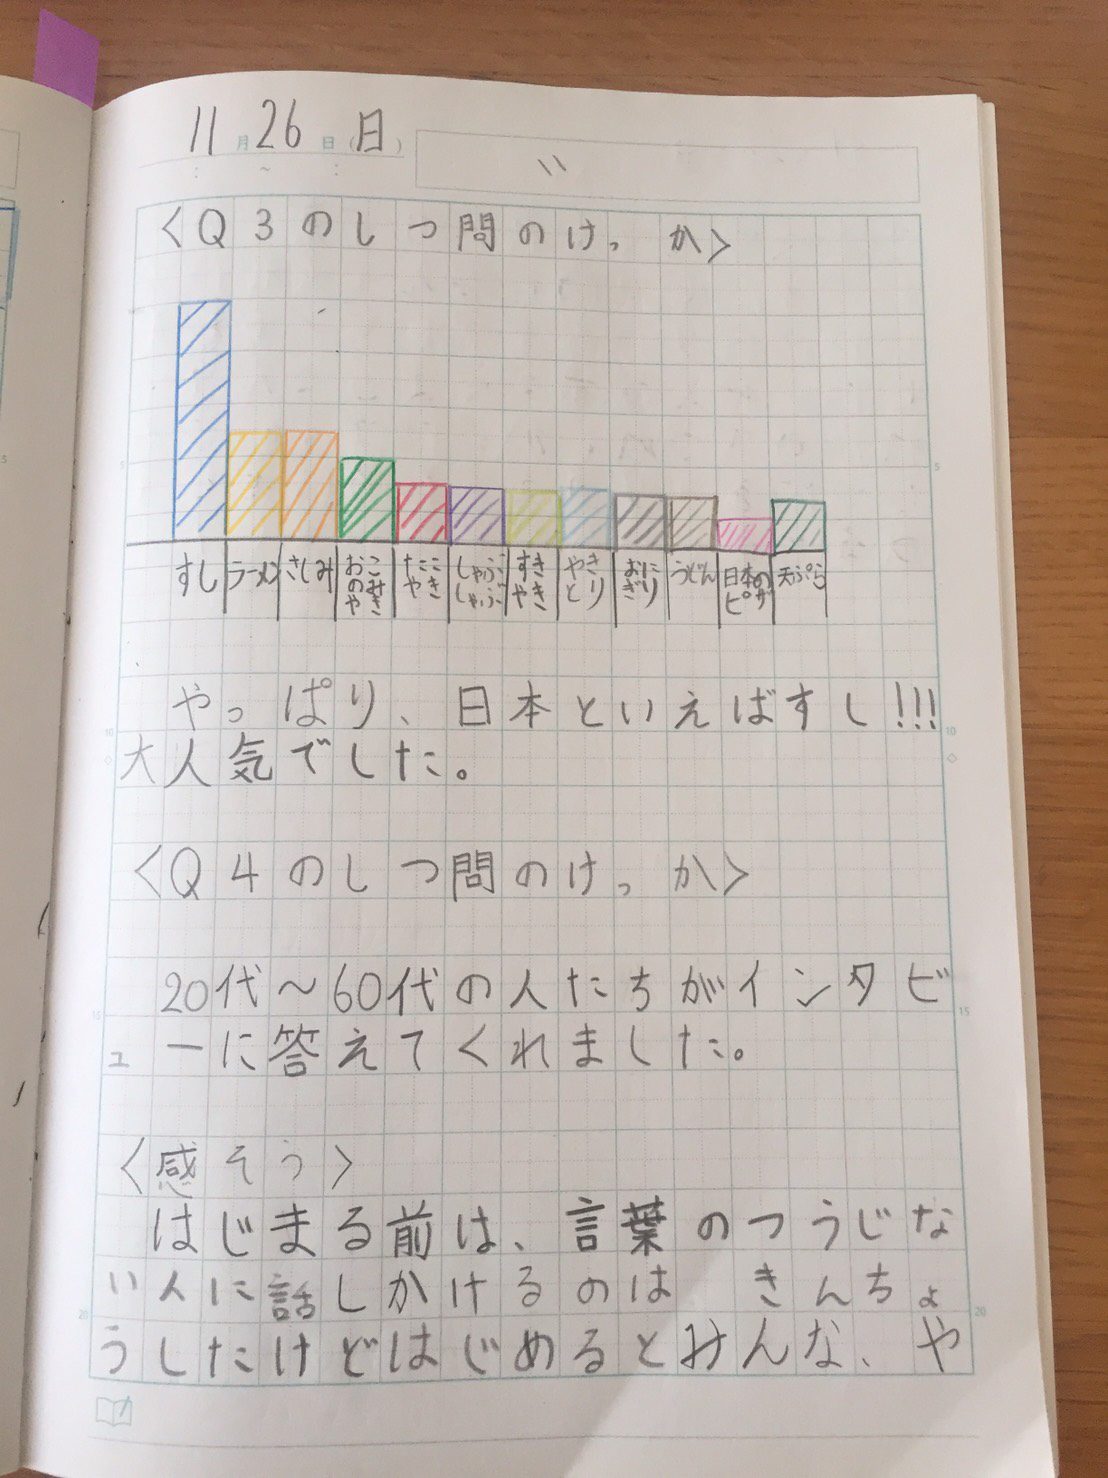 11月26日(日)
〃
〈Q3のしつ問のけっか〉
5
5
すし ラーメン さしみ おこのみやき たこやき しゃぶしゃぶ すきやき やきとり おにぎり うどん 日本のピザ 天ぷら
やっぱり、日本といえばすし!!!
10
10
大人気でした。
〈Q4のしつ問のけっか〉
20代〜60代の人たちがインタビ
15
15
ューに答えてくれました。
〈感そう〉
はじまる前は、言葉のつうじな
い人に話しかけるのは きんちょ
20
20
うしたけどはじめるとみんな、や